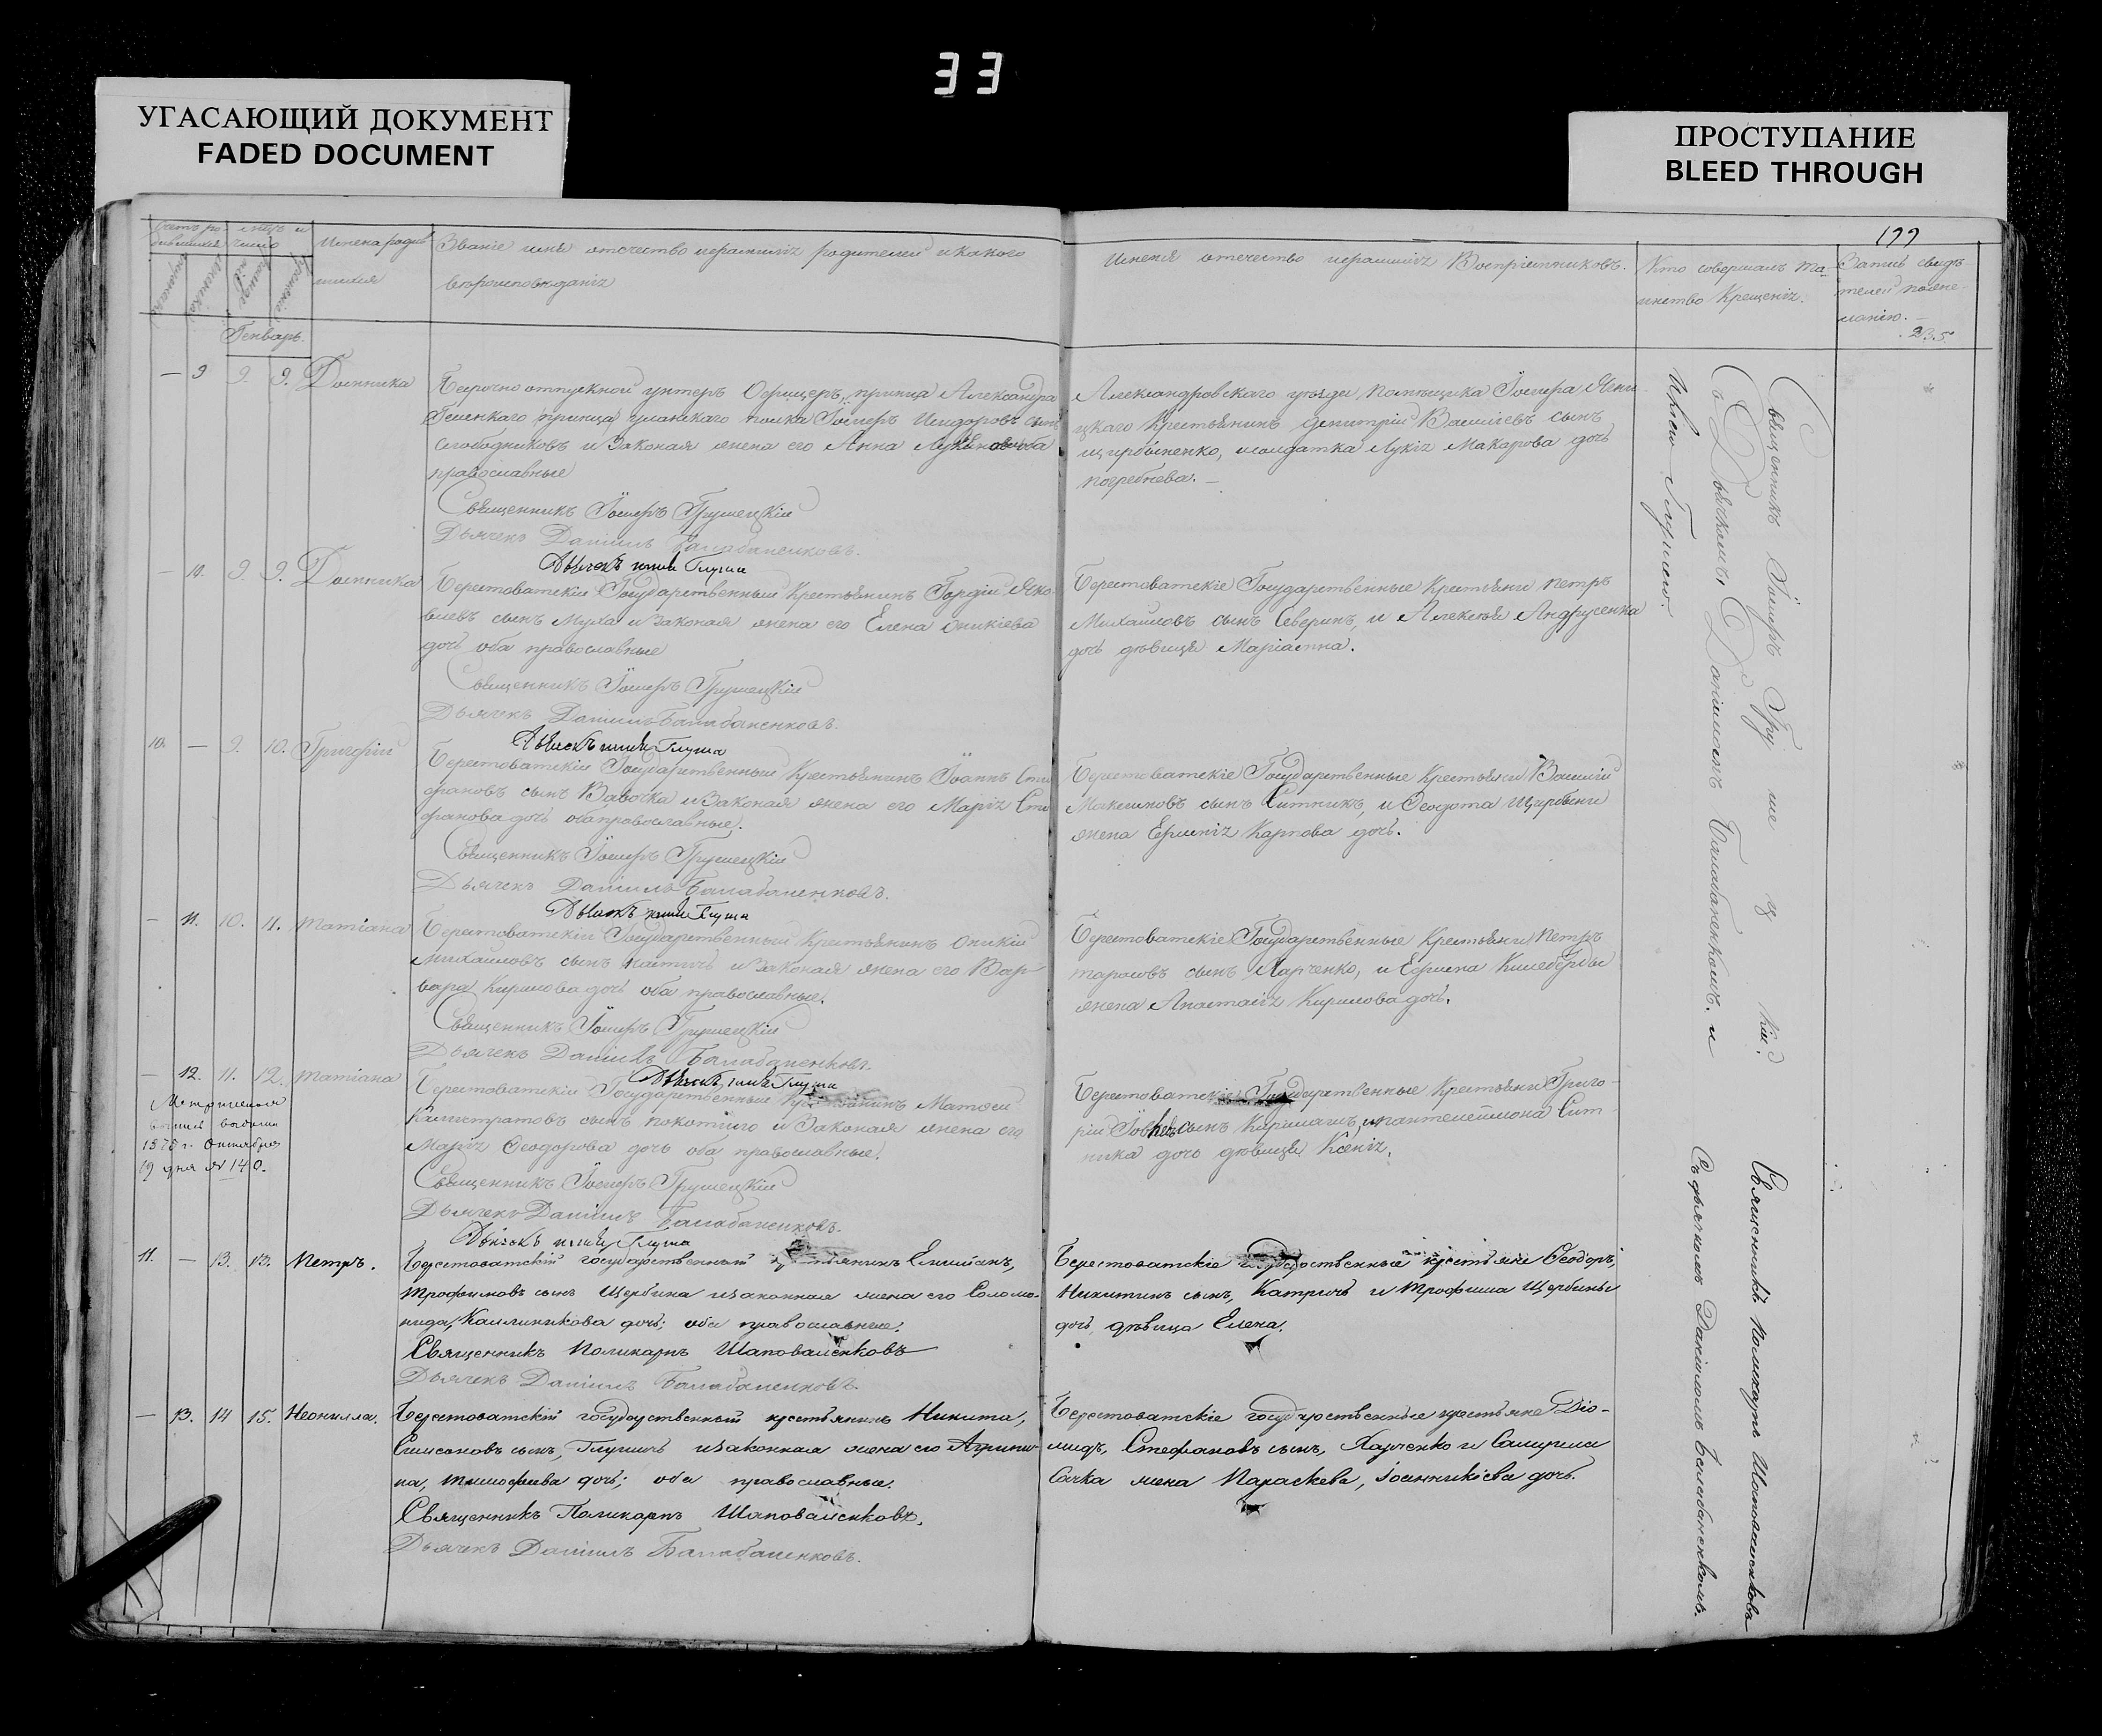 33
УГАСАЮЩИЙ ДОКУМЕНТ
FADED DOCUMENT
ПРОСТУПАНИЕ
BLEED THROUGH
199
Счетъ ро-
дившихся
Имена родив
шихся
Званіе имя отечество и фамилія родителей и какого
вѣроисповѣданія
Имена отечество и фамилія Воспріемниковъ.
Кто совершалъ та-
инство Крещенія.
Запись свидѣ
телей по же-
ланію. —
235
Генварь.
— 9 9. 9. Домника
Безсрочно отпускной унтеръ Офицеръ, принца Александра
Гесенскаго уланскаго полка Іосифъ Исидоровъ сынъ
Слободниковъ и Законая жена его Анна
православные
Священникъ Іосифъ Грушецкій
Дьячекъ Даніилъ Балабаненковъ.
Александровскаго уѣзда помѣщика Іосифа
цкаго Крестьянинъ Димитрій Василіевъ сынъ
щербиненко, солдатка Лукія Макарова дочь
погребнева. —
— 10. 9. 9. Домника
Берестоватскій Государственный Крестьянинъ Гордій Яко
влевъ сынъ Муха и Законая жена его Елена Оникіева
дочь оба православные
Священникъ Іосифъ Грушецкій
Дьячекъ Даніилъ Балабаненковъ.
Берестоватскіе Государственные Крестьяни Петръ
Михаиловъ сынъ Северинъ, и Алексѣя Андрусенка
дочь дѣвица Маріанна.
10. — 9. 10. Григорій
Берестоватскій Государственный Крестьянинъ Іоаннъ Сте
фановъ сынъ Вавочка и Законая жена его Марія Сте
фанова дочь оба православные.
Священникъ Іосифъ Грушецкій
Дьячекъ Даніилъ Балабаненковъ.
Берестоватскіе Государственные Крестьяни Василій
Максимовъ сынъ Ситникъ, и Феодота Щербины
жена Карпова дочь.
— 11. 10. 11. Татіана
Берестоватскій Государственный Крестьянинъ Оникій
Михаиловъ сынъ и Законая жена его Вар-
вара Кирилова дочь оба православные.
Священникъ Іосифъ Грушецкій
Дьячекъ Даніилъ Балабаненковъ.
Берестоватскіе Государственные Крестьяни Петръ
Тарасовъ сынъ Харченко, и Ефима
жена Анастасія Кирилова дочь.
— 12. 11. 12. Татіана
Метрическая
выпись выдана
1878 г. Октября
19 дня № 140.
Берестоватскій Государственный Крестьянинъ Матфей
Калистратовъ сынъ покотило и Законая жена его
Марія Феодорова дочь оба православные.
Священникъ Іосифъ Грушецкій
Дьячекъ Даніилъ Балабаненковъ.
Берестоватскіе Государственные Крестьяни Григо-
рій сынъ и пантелеймона Сит
ника дочь дѣвица Ксенія.
11. — 13. 13. Петръ.
Берестоватскій государственный крестьянинъ Емиліанъ,
Трофимовъ сынъ Щербина и законная жена его Соломо-
нида, Калиникова дочь; оба православные.
Священникъ Поликарпъ Шаповаленковъ
Дьячекъ Даніилъ Балабаненковъ.
Берестоватскіе государственные крестьяне Феодоръ,
Никитинъ сынъ, Катричъ и Трофима Щербины
дочь дѣвица Елена.
— 13. 14 15. Неонилла.
Берестоватскій государственный крестьянинъ Никита,
Симеоновъ сынъ, и законная жена его Агрипи-
на, Тимофѣева дочь; оба православные.
Священникъ Поликарпъ Шаповаленковъ.
Дьячекъ Даніилъ Балабаненковъ.
Берестоватскіе государственные крестьяне Діо-
мидъ, Стефановъ сынъ, Харченко и
Сачка жена Параскева, Іоанникіева дочь.
Священникъ Іосифъ Грушецкій.
съ Дьячкомъ Даніиломъ Балабаненкомъ. и
Священникъ Поликарпъ Шаповаленковъ
Съ дьячкомъ Даніиломъ Балабаненкомъ.